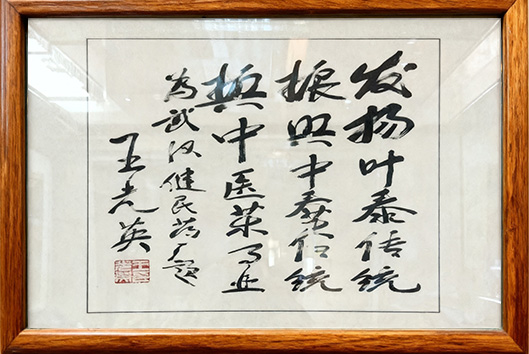 发扬叶泰传统
振兴中泰传统
中医药事业
为武汉健民药厂题
王光英